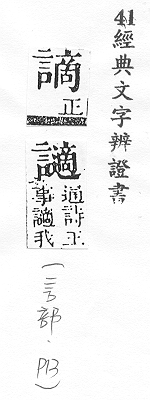 41經典文字辨證書
謫
正
讁
通詩王
事讁我
(言部.P13)